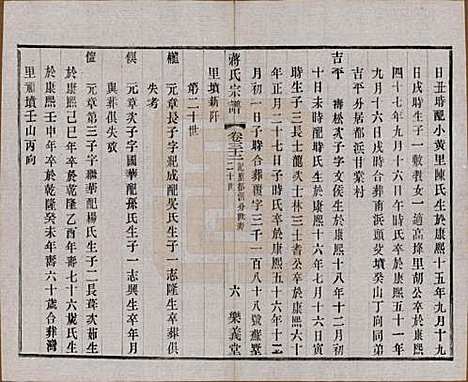 日丑時配小黄里陳氏生於康熙十五年九月十九
日戌時生子一敷教女一適高垾里胡公卒於康熙
四十七年九月十六日午時氏卒於康熙五十一年
九月十六日寅時合葬南浜頭艾墳癸山丁向同弟
吉平分居都浜甘棠村
吉平 壽松次子字文侯生於康熙十八年十二月初
十日未時配時氏生於康熙十六年七月十六日亥
時生子三長士龍次士林三士
正月二十七日子時氏卒於康熙六十年十二
月初一日子時合葬覆字三千一百八十八號蘇墅
里墳新阡
蔣氏宗譜
卷三十二
二十世
六
樂義堂
第二十世
權 元章長子字紀成配吳氏生子一志隆生卒葬俱
失考
俱 元章次子字國華配孫氏生子一志興生卒年月
與葬俱失攷
愷 元章第三子字繼華配楊氏生子二長聳次茹生
於康熙己巳年卒於乾隆乙酉年壽七十六歲氏生
於康熙癸未年卒於乾隆癸未年壽六十歲合葬灣
里祖墳壬山丙向